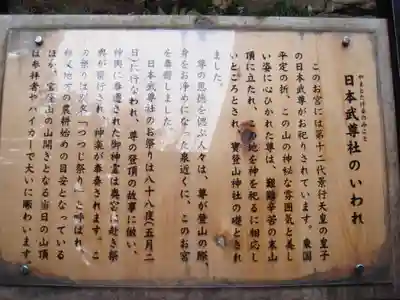 やまとたけるのみこと
日本武尊社のいわれ
このお宮には第十二代景行天皇の皇子
の日本武尊がお祀りされています。東国
平定の折、この山の神秘な雰囲気と美し
い姿に心ひかれた尊は、艱難辛苦の末山
頂に立たれ、この地を神を祀るに相応し
いところとされ、寳登山神社の礎とされ
ました。
尊の恩徳を偲ぶ人々は、尊が登山の際、
身をお浄めになった泉近くに、このお宮
を奉齋しました。
日本武尊社のお祭りは八十八夜(五月二
日)に行なわれ、尊の登頂の故事に倣い、
神輿に奉遷された御神霊は奥宮に赴き祭
典が齋行され、神楽が奏奉されます。こ
の祭りは別名「つつじ祭り」と呼ばれ、
秩父地方の農耕始めの目安となっている
ほか、宝登山の山開きとなる当日の山頂
は参拝者やハイカーで大いに賑わいます。